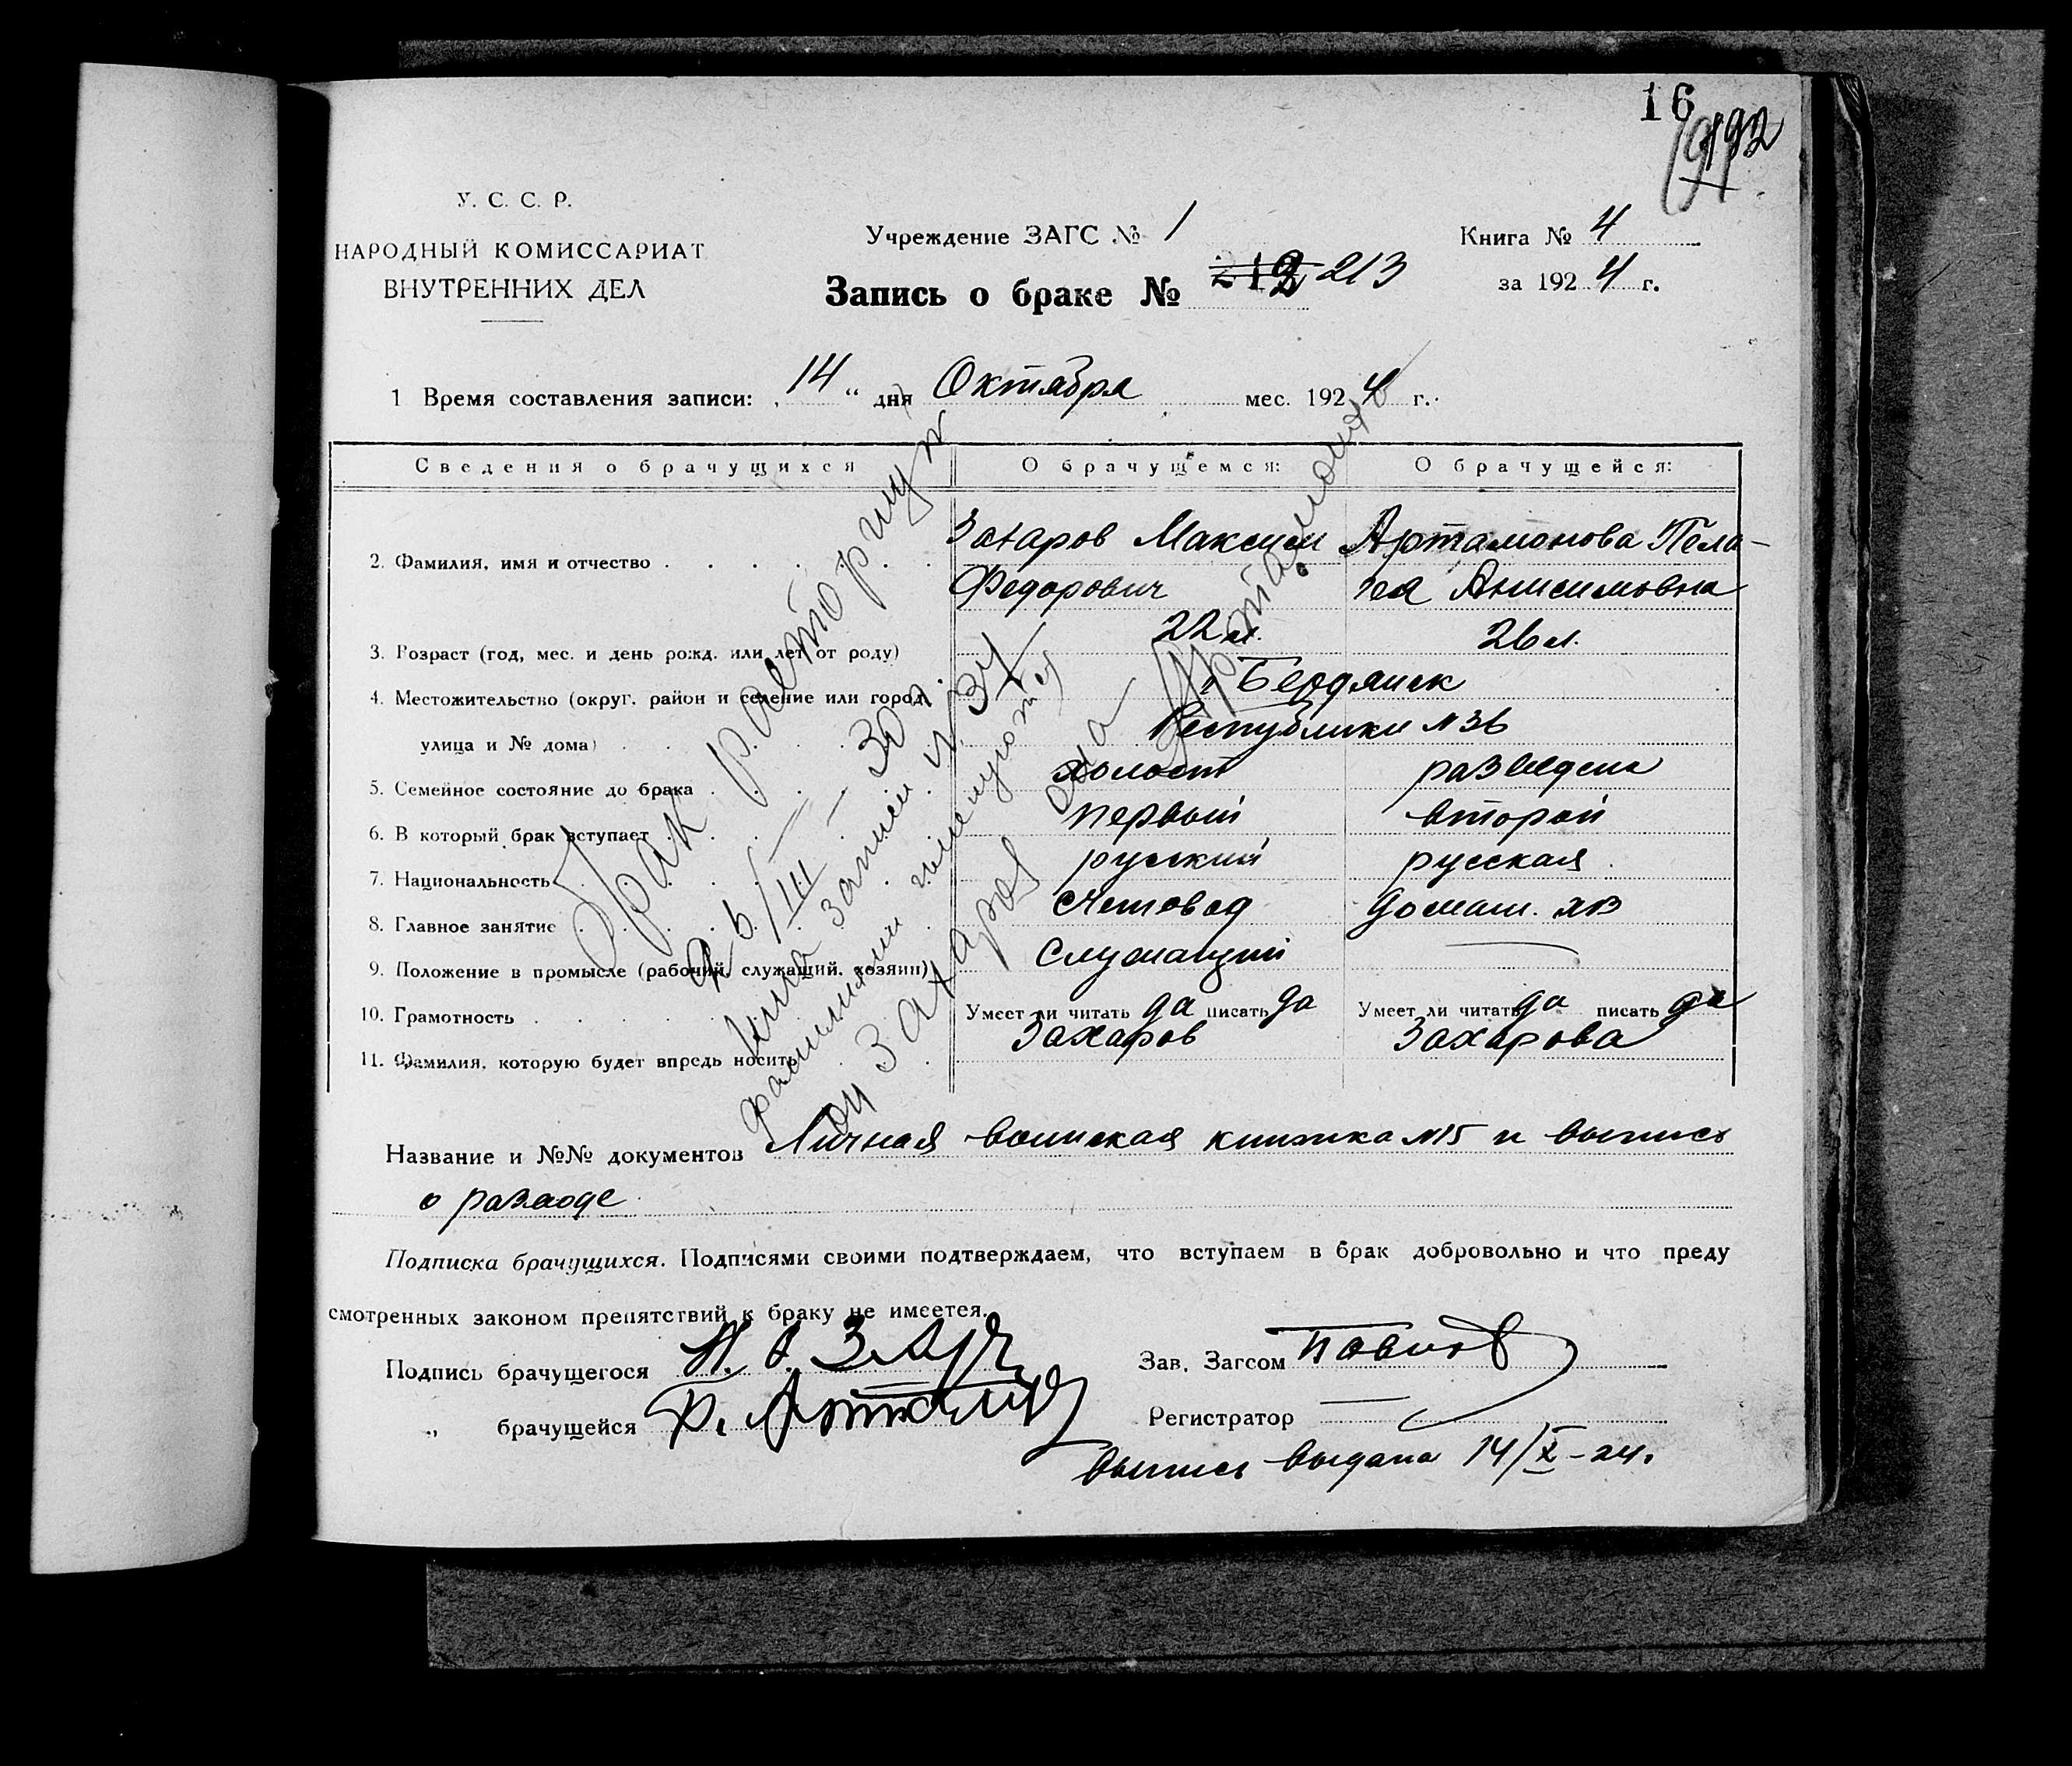 16
192
У. С. С. Р.
НАРОДНЫЙ КОМИССАРИАТ
ВНУТРЕННИХ ДЕЛ
Учреждение ЗАГС № 1
Книга № 4
Запись о браке № 212 213
за 1924 г.
1 Время составления записи: „14“ дня Октября мес. 1924 г.
Сведения о брачущихся О брачущемся: О брачущейся:
2. Фамилия, имя и отчество Захаров Максим Артамонова Пела-
Федорович гея Анисимовна
3. Возраст (год, мес. и день рожд. или лет от роду) 22 л. 26 л.
4. Местожительство (округ, район и селение или город, г Бердянск
улица и № дома) Республики №36
5. Семейное состояние до брака холост разведена
6. В который брак вступает первый второй
7. Национальность русский русская
8. Главное занятие Счетовод домаш. хоз
9. Положение в промысле (рабочий, служащий, хозяин) Служащий —
10. Грамотность Умеет ли читать да писать да Умеет ли читать да писать да
11. Фамилия, которую будет впредь носить Захаров Захарова
Брак расторгнут
6/III – 30 г.
записи № 34
фамилиями именуются
он Захаров она Артамонова
Название и №№ документов Личная воинская книжка №15 и выпись
о разводе
Подписка брачущихся. Подписями своими подтверждаем, что вступаем в брак добровольно и что преду
смотренных законом препятствий к браку не имеется.
Подпись брачущегося
Зав. Загсом
„ брачущейся
Регистратор —
Выпись выдана 14/X – 24.